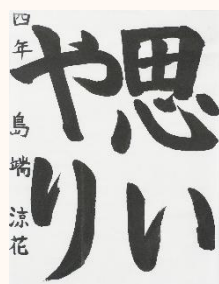 思い
やり
四年 島端 涼花